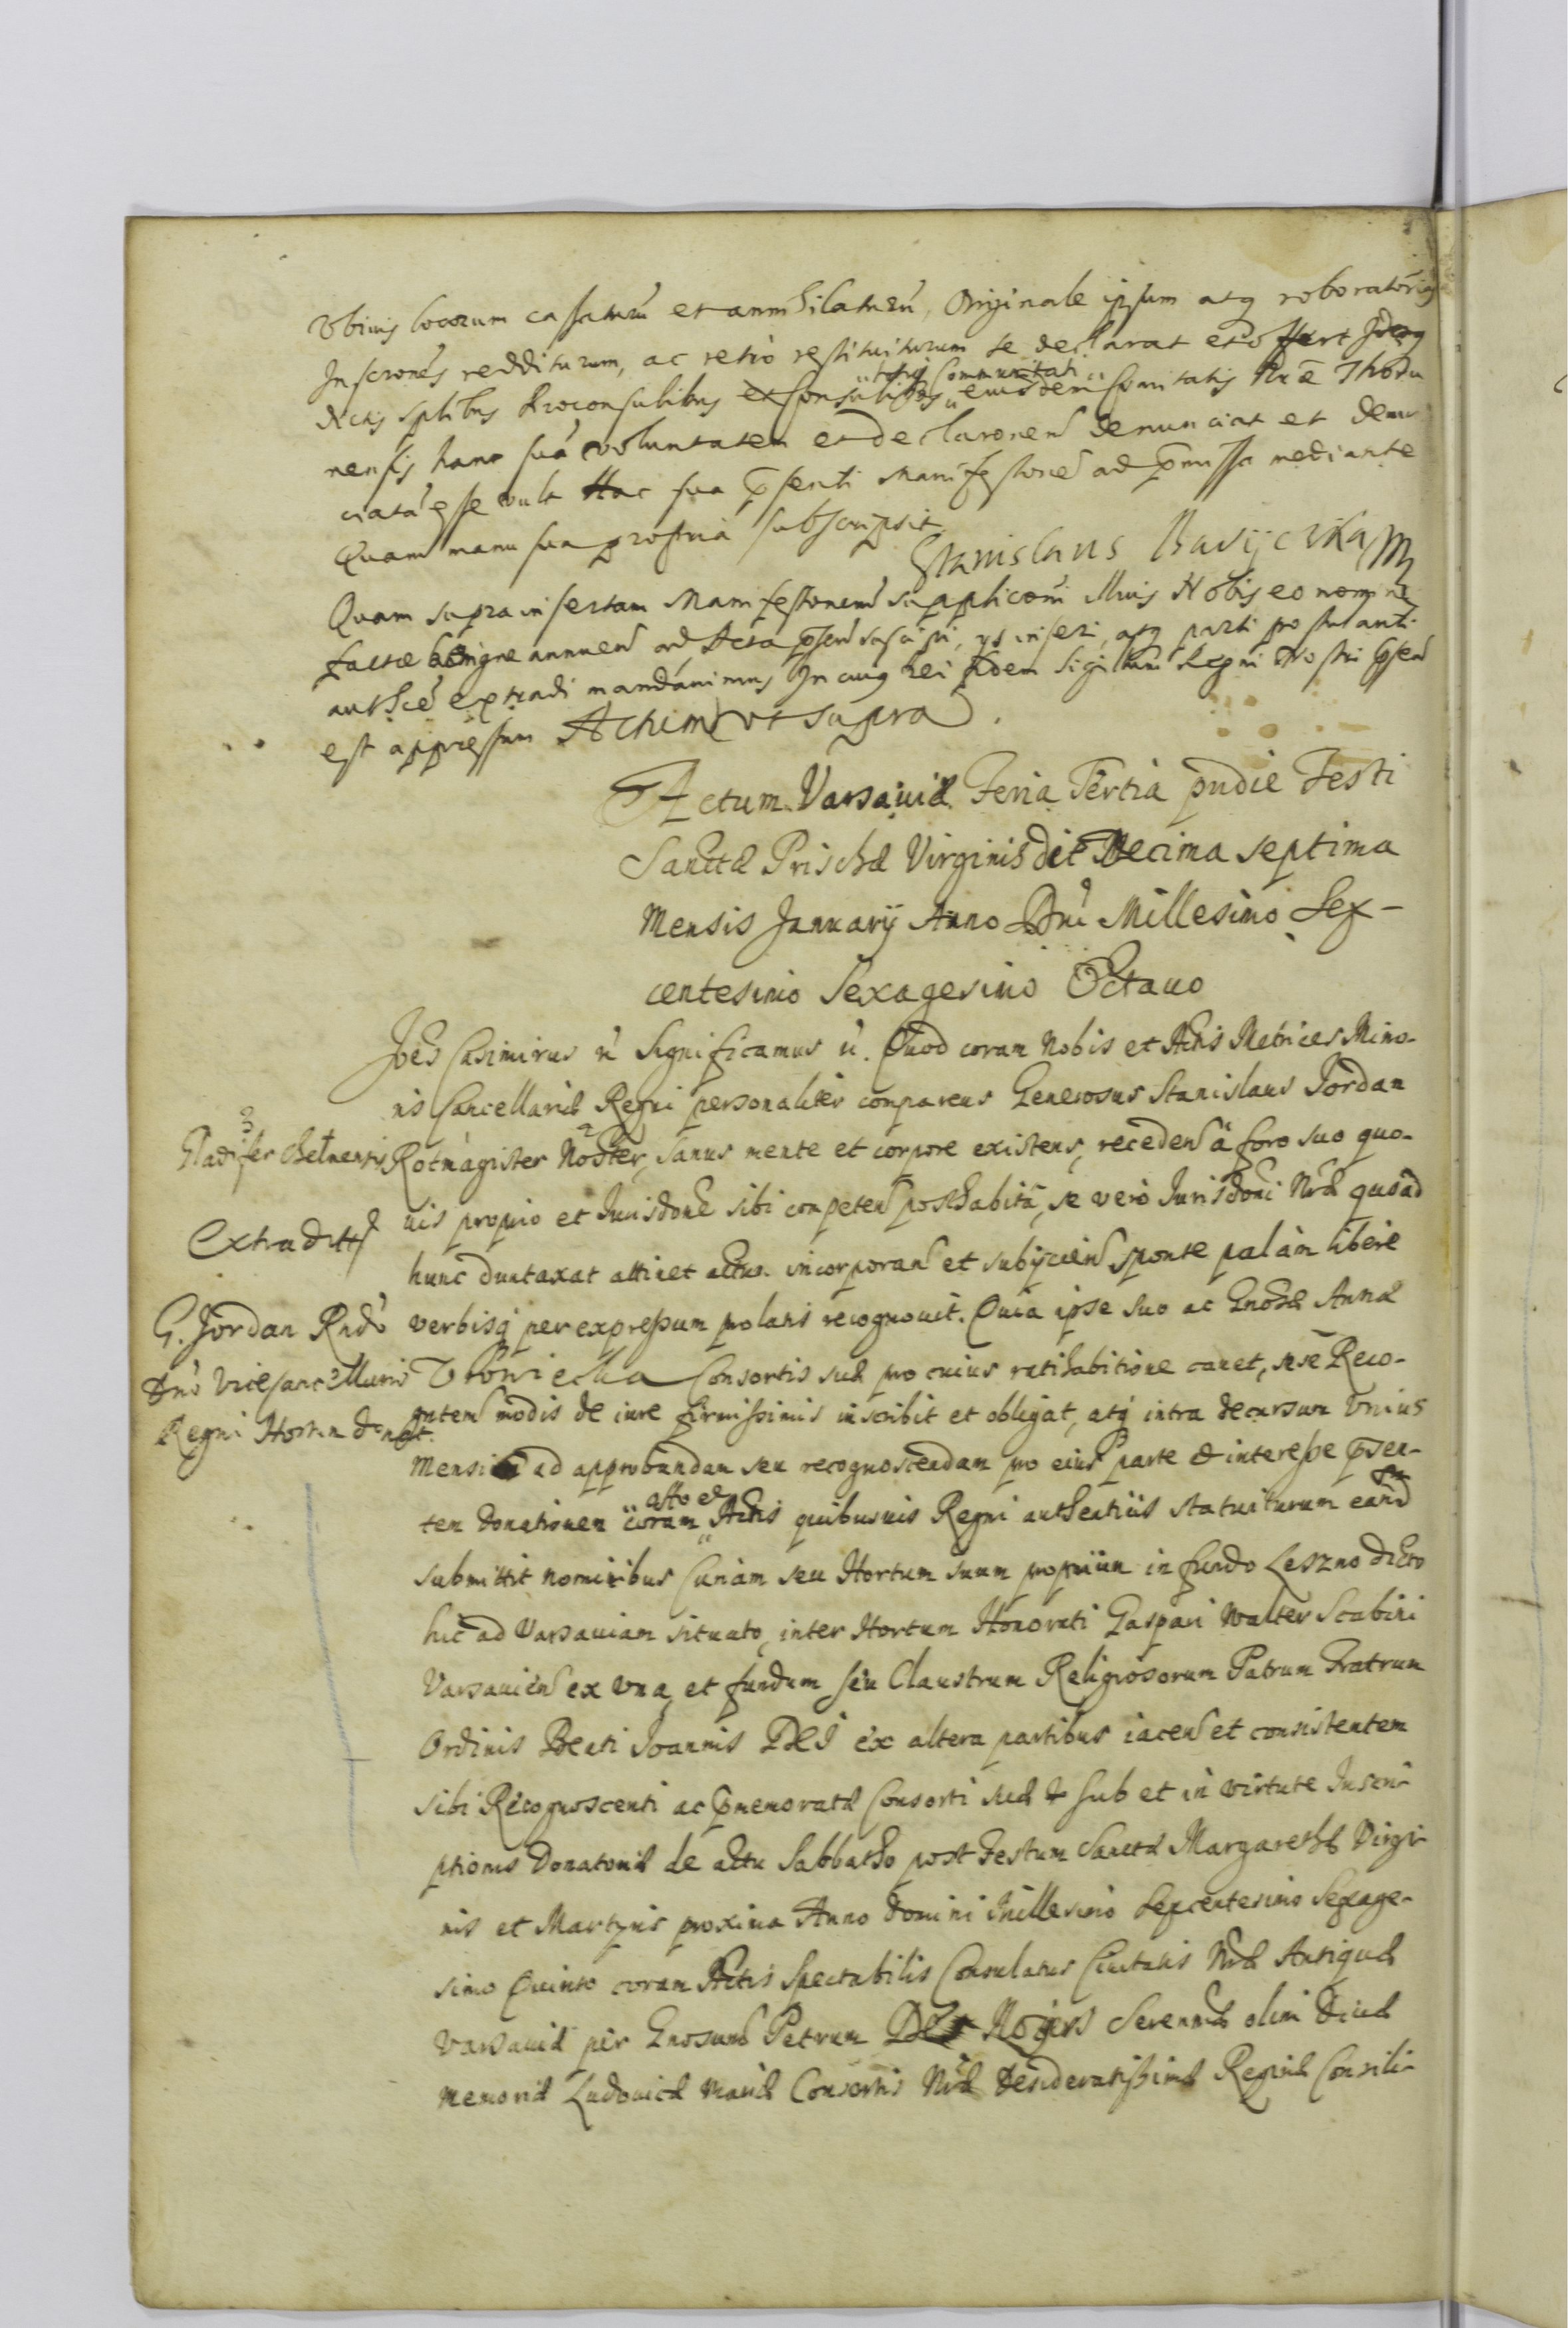 Vbivis locorum casaturũ et annihilaturũ, Originale ipsum atq roboratũ
Inscrones redditurum, ac retrò restituiturum se declarat et offert
dictis Sptibus Proconsulibus et Consulibus totiq Communitati eiusdem Civitatis Nrae Thoru
nensis hanc suã voluntatem et declaronem denunciat et denun
ciatã esse vult Hac sua p̃senti Manifestone ad p̃missa mediante
Quam manu sua propria subscripsit
Stanislaus
Quam supra insertam Manifestonem suppliconi Nobis eo nomine
factae benigne annuen ad Acta p̃sen suscipi, ys inseri, atq parti postulanti
authce extradi mandavimus In cuius rei fidem Sigillum Regni Nostri p̃sen
est appressum Actum ut supra.
Actum Varsaviae Feria Tertia pridie Festi
Sanctae Prischae Virginis die Decima septima
Mensis January Anno Dni Millesimo Sex-
centesimo Sexagesimo Octauo
Joẽs Casimirus &c Significamus &c. Quod coram Nobis et Actis Metrices Mino-
ris Cancellariae Regni personaliter comparens Generosus Stanislaus Jordan
Gladifer Belnensis
Rotmagister Noster, sanus mente et corpore existens, receden à foro suo quo-
uis proprio et Iurisdone sibi competen posthabitâ, se verò Iurisdoni Nrae quoad
Extradit
hunc duntaxat attinet actus incorporan et subijcien sponte palàm liberè
G. Jordan Rndo
verbisq per expressum prolatis recognouit. Quia ipse suo ac Gnosae Annae
Dno Vicecancellario
Vboniecka Consortis suae pro cuius ratihabitione cauet, nse Reco-
Regni Hortum donat.
gnten modis de iure firmissimis inscribit et obligat, atq intra decursum Vnius
Mensis ad approbandam seu recognoscendam pro eius Parte & interesse p̃sen-
tem donationem coram Actis quibusuis Regni authenticis statuiturum eand
submittit nominibus Curiam seu Hortum suum proprium in fundo Leszno dicto
hic ad Varsauiam situato, inter Hortum Honorati Gaspari Walter Scabini
Varsauien ex vna, et fundum seu Claustrum Religiosorum Patrum Fratrum
Ordinis Beati Joannis DEI ex altera partibus iacen et consistentem
sibi Recognoscenti ac p̃memoratae Consorti suae & sub et in virtute Inscri-
ptionis Donatoriae de actu Sabbatho post Festum Sanctae Margarethae Virgi-
nis et Martyris proximo Anno Domini Millesimo Sexcentesimo Sexage-
simo Quinto coram Actis Spectabilis Consulatus Ciuitatis Nrae Antiquae
Varsauiae per Gnosum Petrum Des Noijers Serenmae olim Diuae
Memoriae Ludouicae Mariae Consortis Nrae Desideratissimae Reginae Consili-